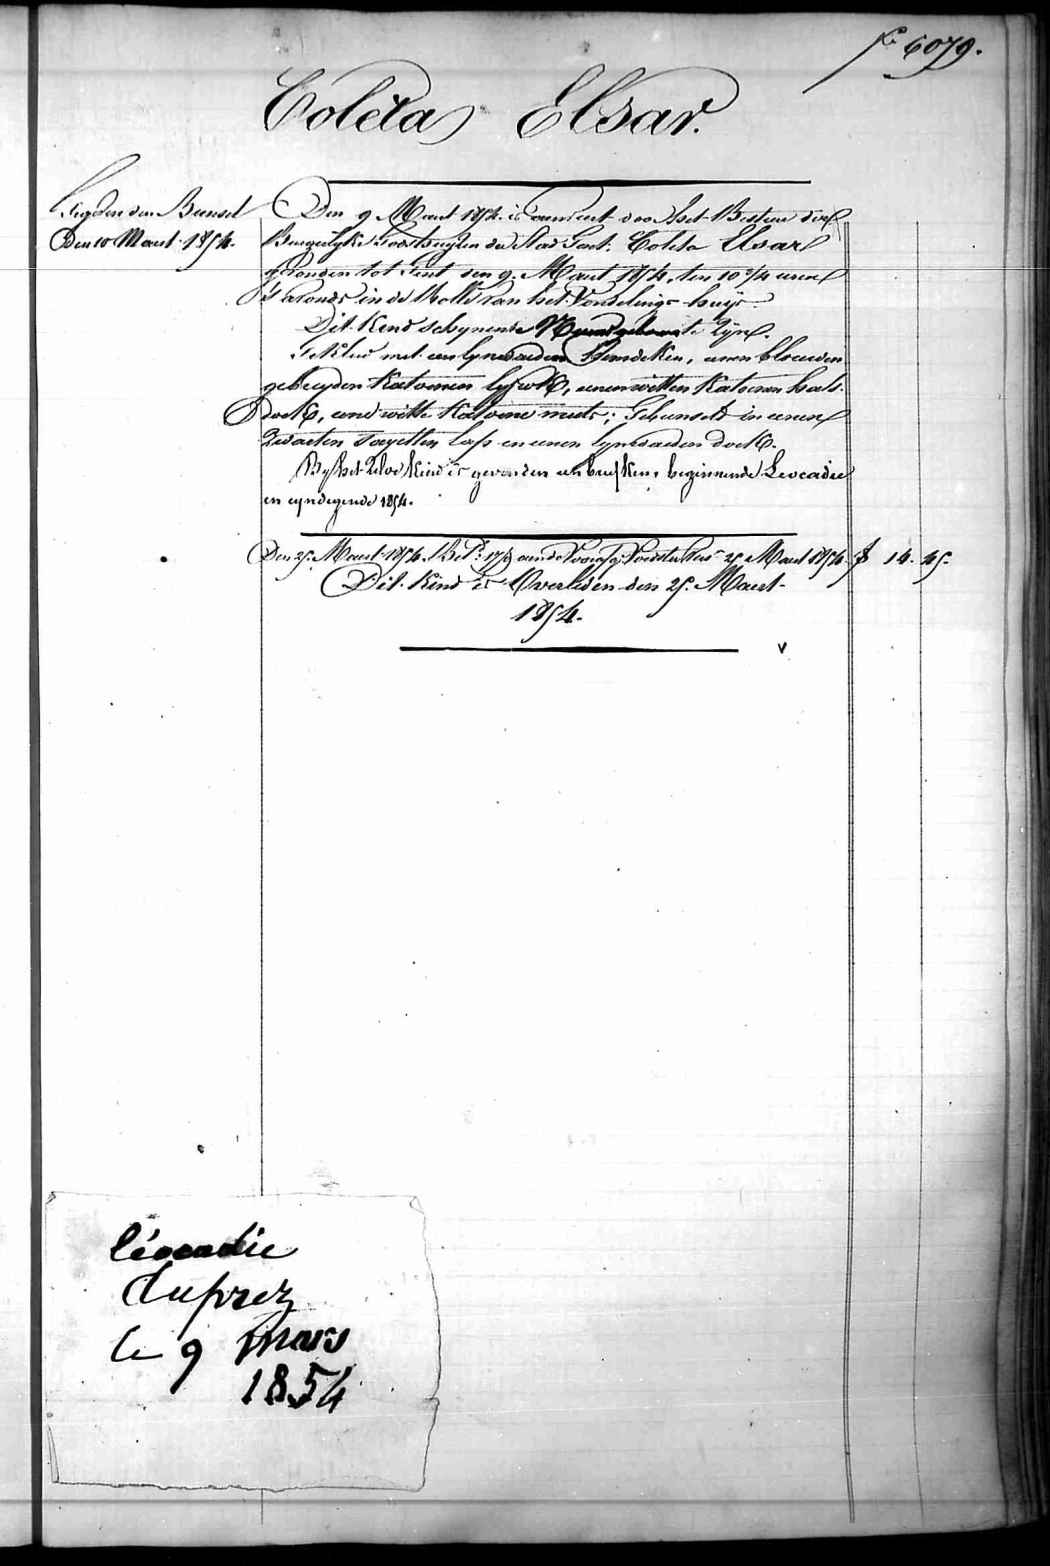 fo 6079.
Coleta Elsar.
Den 10 Maert 1854.
Den 9 Maert 1854 is aenveert door het Bestier der
Burgerlyke Godshuyzen der Stad Gent: Coleta Elsar
gevonden tot Gent den 9. Maert 1854, ten 10 3/4 uren
's avonds in de Rolle van het Vondelings-huys.
Dit Kind schynende Nieuwgeboren te zyn.
Gekleed met een lynwaeden Hemdeken, eenen blauwen
gebreyden Katoenen lyfrok, eenen witten Katoenen hals-
doek, eene witte Katoene muts; Gebunseld in eenen
zwarten sayetten lap en eenen lynwaeden doek.
By het zelve Kind is gevonden een briefken, beginnende Leocadie
en eyndigende 1854.
Den 25. Maert 1854 Bet. aende 25 Maert 1854 f 14. 45.
Dit Kind is Overleden den 25. Maert
1854.
léocadie
Duprez
le 9 mars
1854